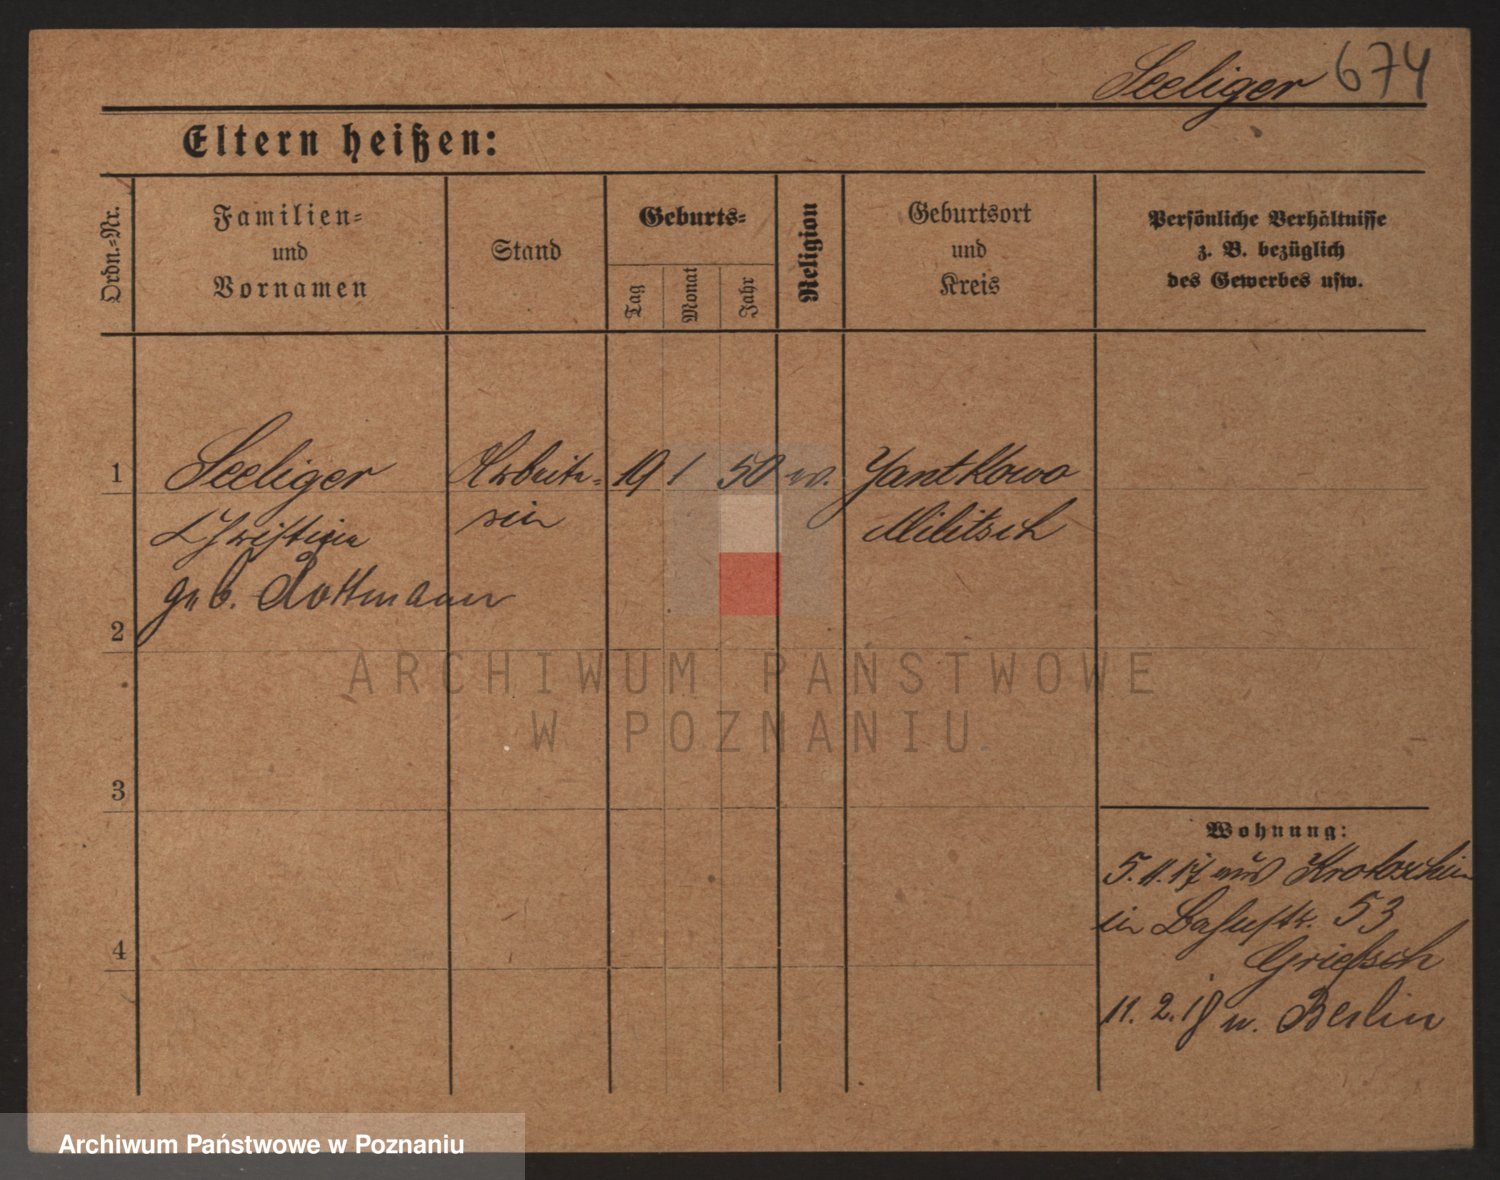 Seeliger 674
Eltern heißen:
Ordn.=Nr.
Familien=
und
Vornamen
Stand
Geburts=
Tag
Monat
Jahr
Religion
Geburtsort
und
Kreis
Persönliche Verhältnisse
z. B. bezüglich
des Gewerbes usw.
1 Seeliger Arbeite= 19 1 50 w. Jantkowo
Christine rin Militsch
geb. Rottmann
2
ARCHIWUM PAŃSTWOWE
W POZNANIU
3
Wohnung:
5.11.17 aus Krotoschin
in 53
4
11.2.18 n. Berlin
Archiwum Państwowe w Poznaniu